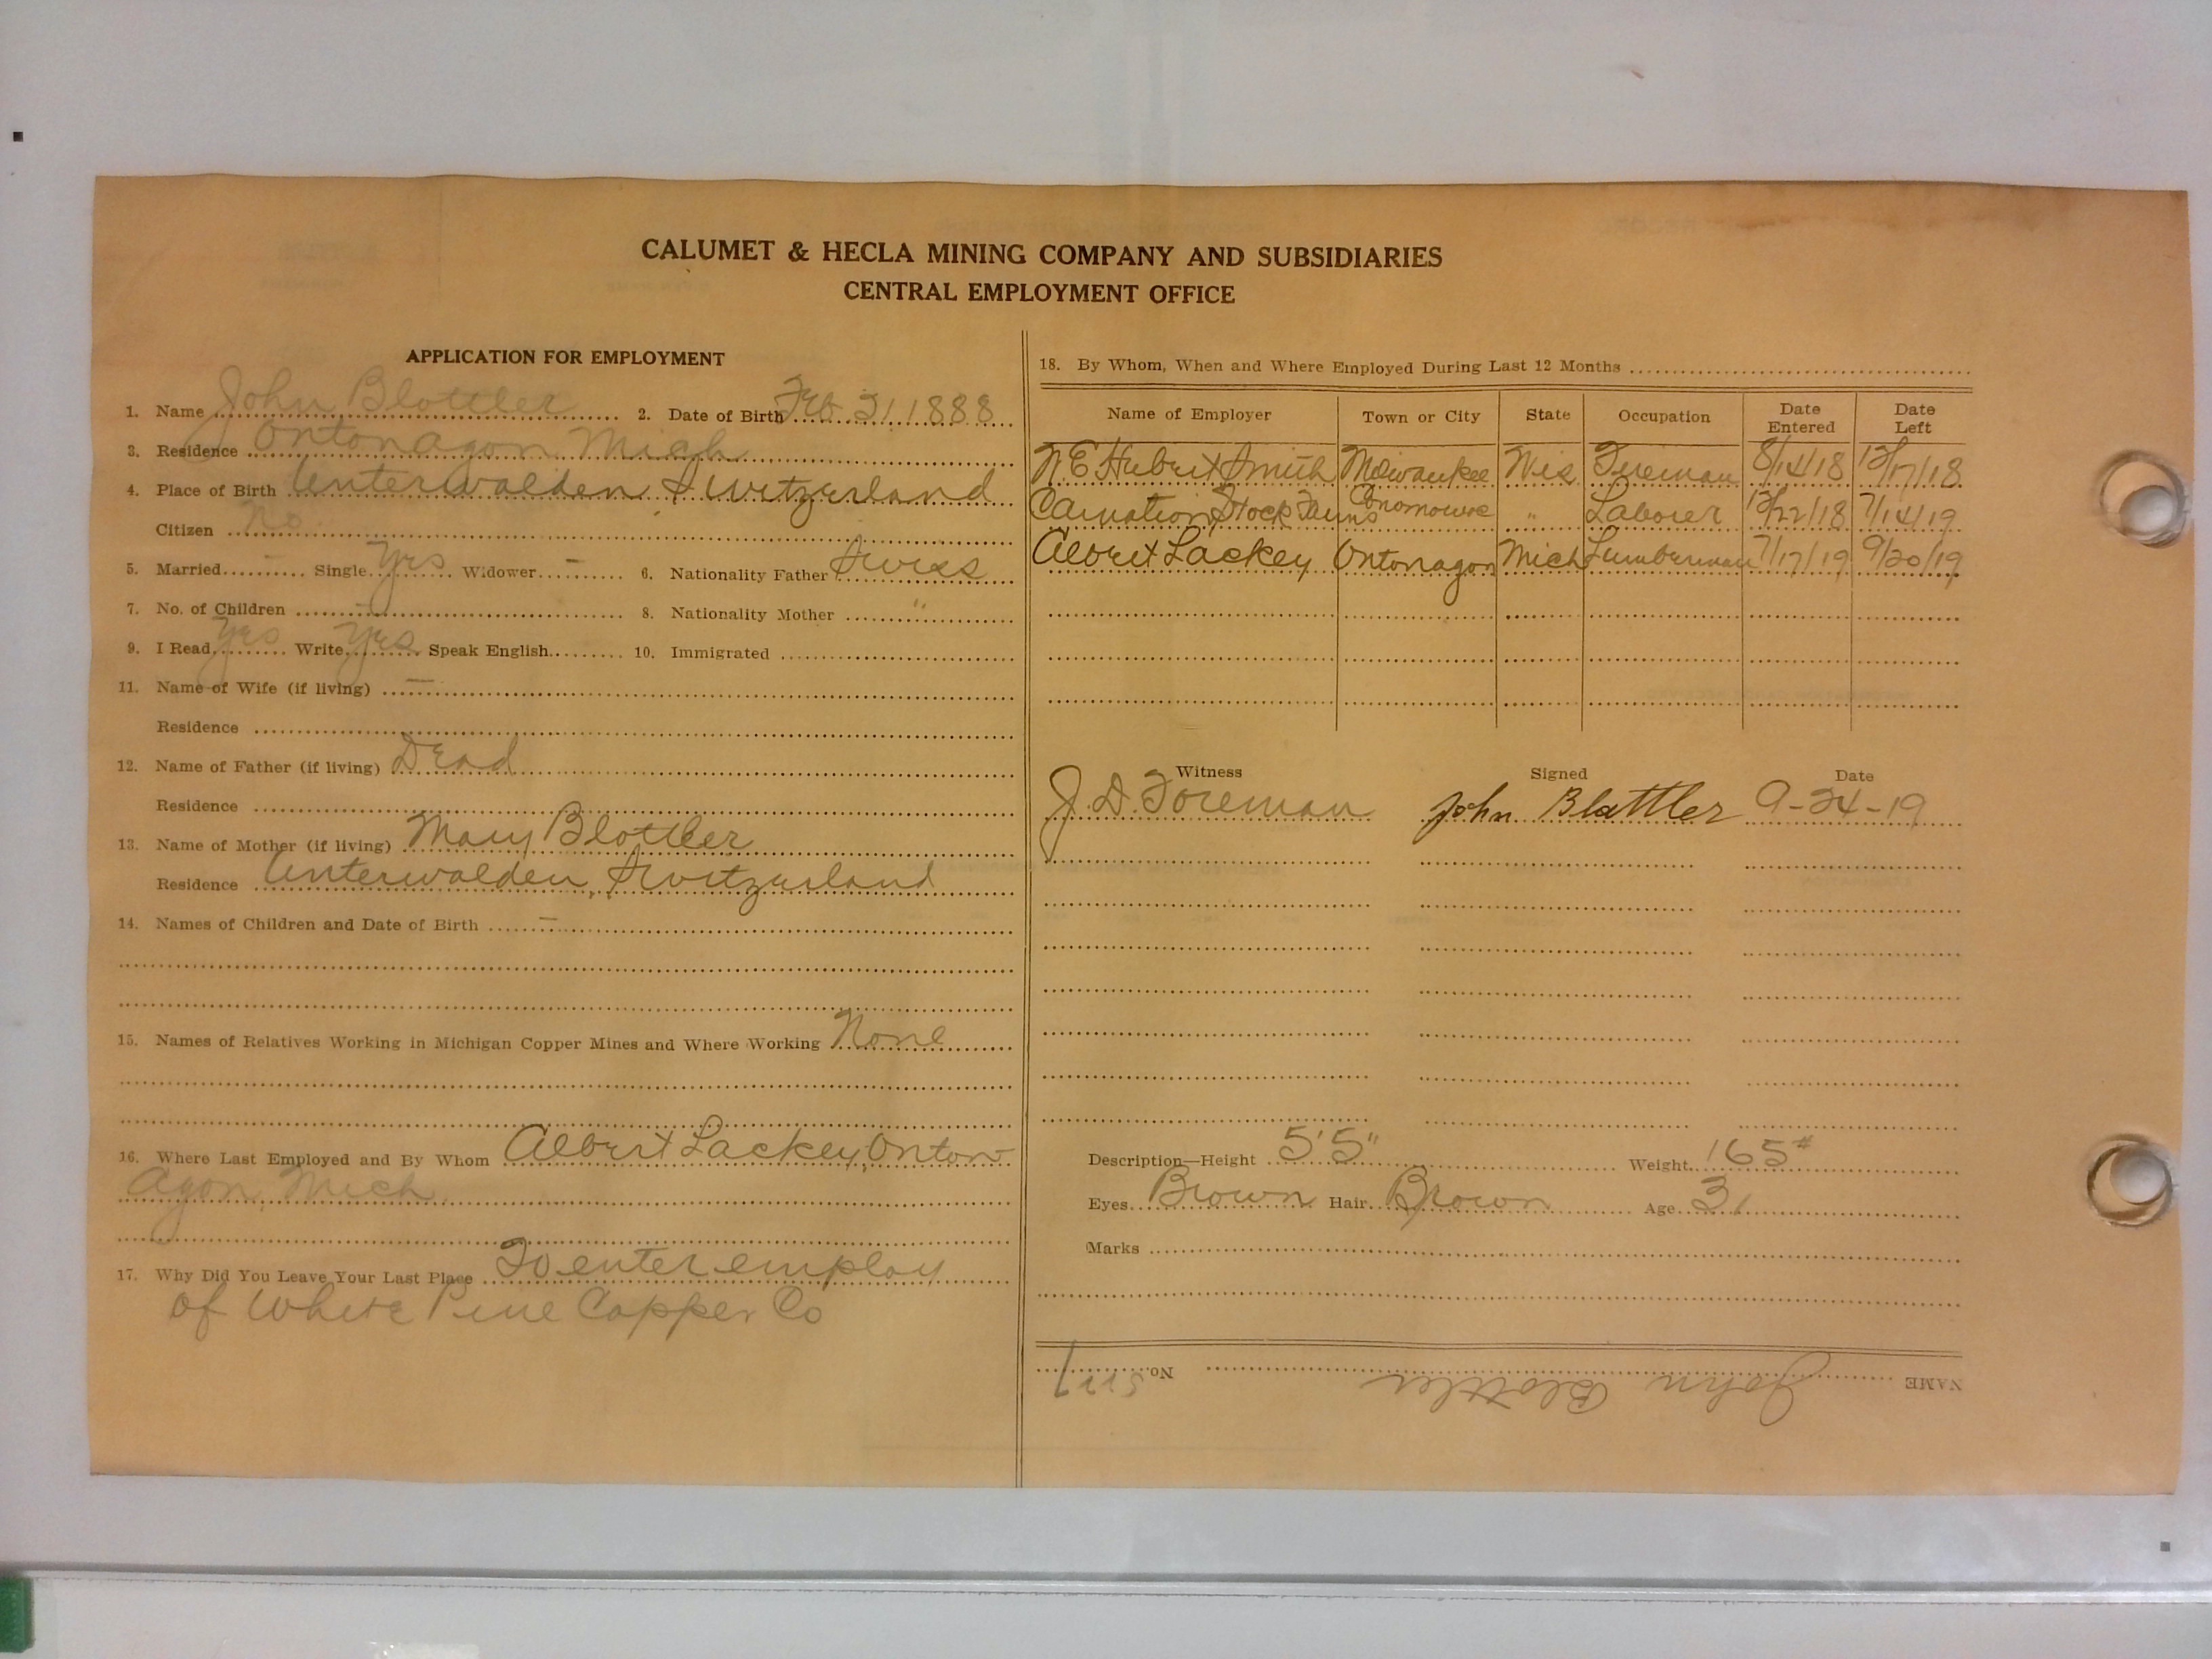 CALUMET & HECLA MINING COMPANY AND SUBSIDIARIES
CENTRAL EMPLOYMENT OFFICE
APPLICATION FOR EMPLOYMENT
1. Name John Blottler 2. Date of Birth Feb. 21, 1888
3. Residence Ontonagon Mich
4. Place of Birth Unterwalden Switzerland
Citizen No
5. Married - Single Yes Widower - 6. Nationality Father Swiss
7. No. of Children - 8. Nationality Mother "
9. I Read Yes Write Yes Speak English 10. Immigrated
11. Name of Wife (if living) -
Residence
12. Name of Father (if living) Dead
Residence
13. Name of Mother (if living) Mary Blottler
Residence Unterwalden, Switzerland
14. Names of Children and Date of Birth -
15. Names of Relatives Working in Michigan Copper Mines and Where Working None
16. Where Last Employed and By Whom Albert Lackey, Onton-
agon Mich.
17. Why Did You Leave Your Last Place To enter employ
of White Pine Copper Co
18. By Whom, When and Where Employed During Last 12 Months
Name of Employer Town or City State Occupation Date Entered Date Left
Hubert Smith Milwaukee Wis Fireman 8/14/18 12/17/18
Carnation Stock Farms " Laborer 12/22/18 7/14/19
Albert Lackey Ontonagon Mich Lumberman 7/17/19 9/20/19
Witness Signed Date
J. D. Foreman John Blattler 9-24-19
Description—Height 5'5" Weight 165#
Eyes Brown Hair Brown Age 31
Marks
NAME John Blottler No.